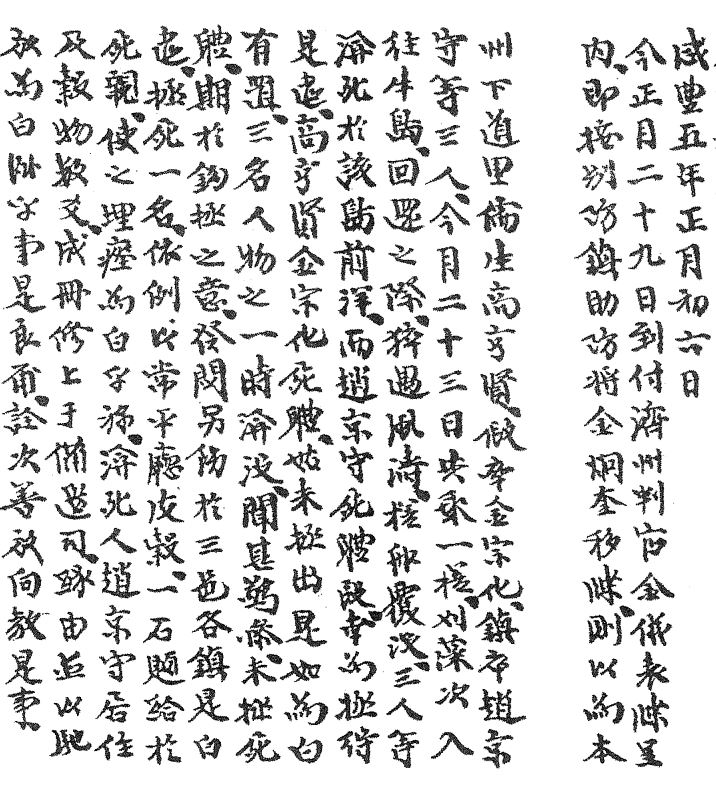 咸豊五年正月初六日
今正月二十九日到付濟州判官金儀表牒呈
內即接別防鎭助防將金炯奎移牒則以爲本
州下道里儒生高亨賢假率金宗化鎭卒趙京
守等三人今月二十三日共乘一槎刈藻次入
往牛島回還之際猝遇風濤槎即覆沒三人等
渰死於該島前洋而趙京守死體段幸爲拯得
是遣高亨賢金宗化死體姑未拯出是如爲白
有置三名人物之一時渰沒聞甚驚慘未拯死
體期於鉤拯之意發關另飭於三邑各鎭是白
遣拯死一名依例以常平廳皮穀一石題給於
死親使之埋瘞爲白乎旀渰死人趙京守居住
及穀物數爻成冊修上于備邊司緣由並以馳
啓爲白臥乎事是良厼詮次善啓向敎是事